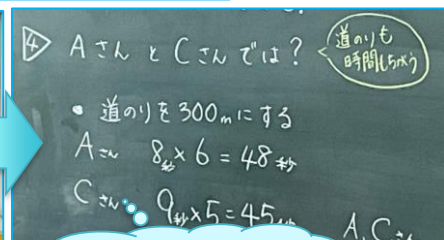 ④ AさんとCさんでは?
道のりも
時間もちがう
• 道のりを300mにする
Aさん 8秒×6=48秒
Cさん 9秒×5=45秒
A、Cさん